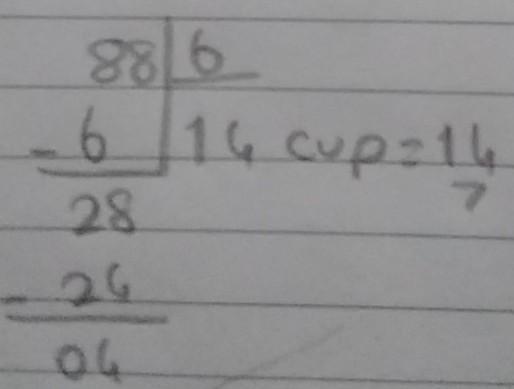 88 6
- 6 14 cup = 14
28
- 24
04